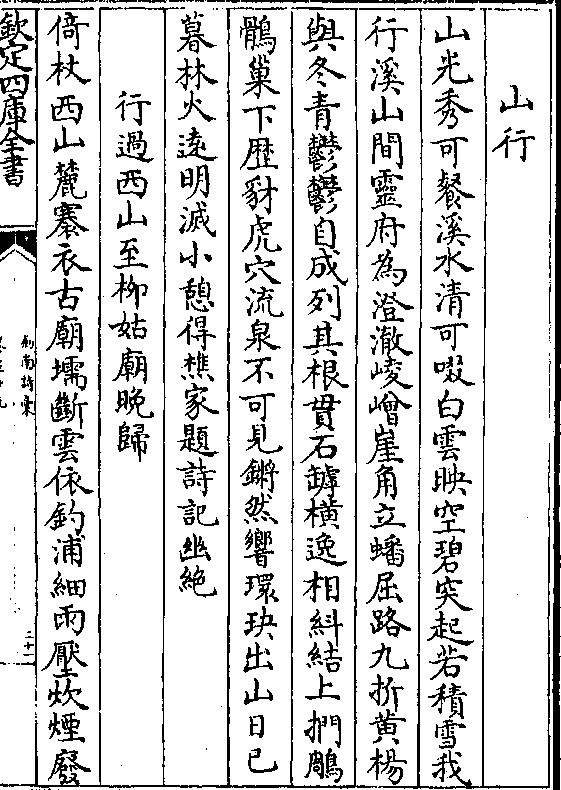 山行
山光秀可餐溪水清可啜白雲映空碧突起若積雪我
行溪山間靈府為澄澈崚嶒崖角立蟠屈路九折黄楊
與冬青鬱鬱自成列其根貫石罅横逸相糾結上捫鵰
鶻巢下歴豺虎穴流泉不可見鏘然響環玦出山日已
暮林火遠明滅小憩得樵家題詩記幽絶
行過西山至柳姑廟晚歸
倚杖西山麓褰衣古廟壖斷雲依釣浦細雨壓炊煙廢
欽定四庫全書
劍南詩稾
二十一